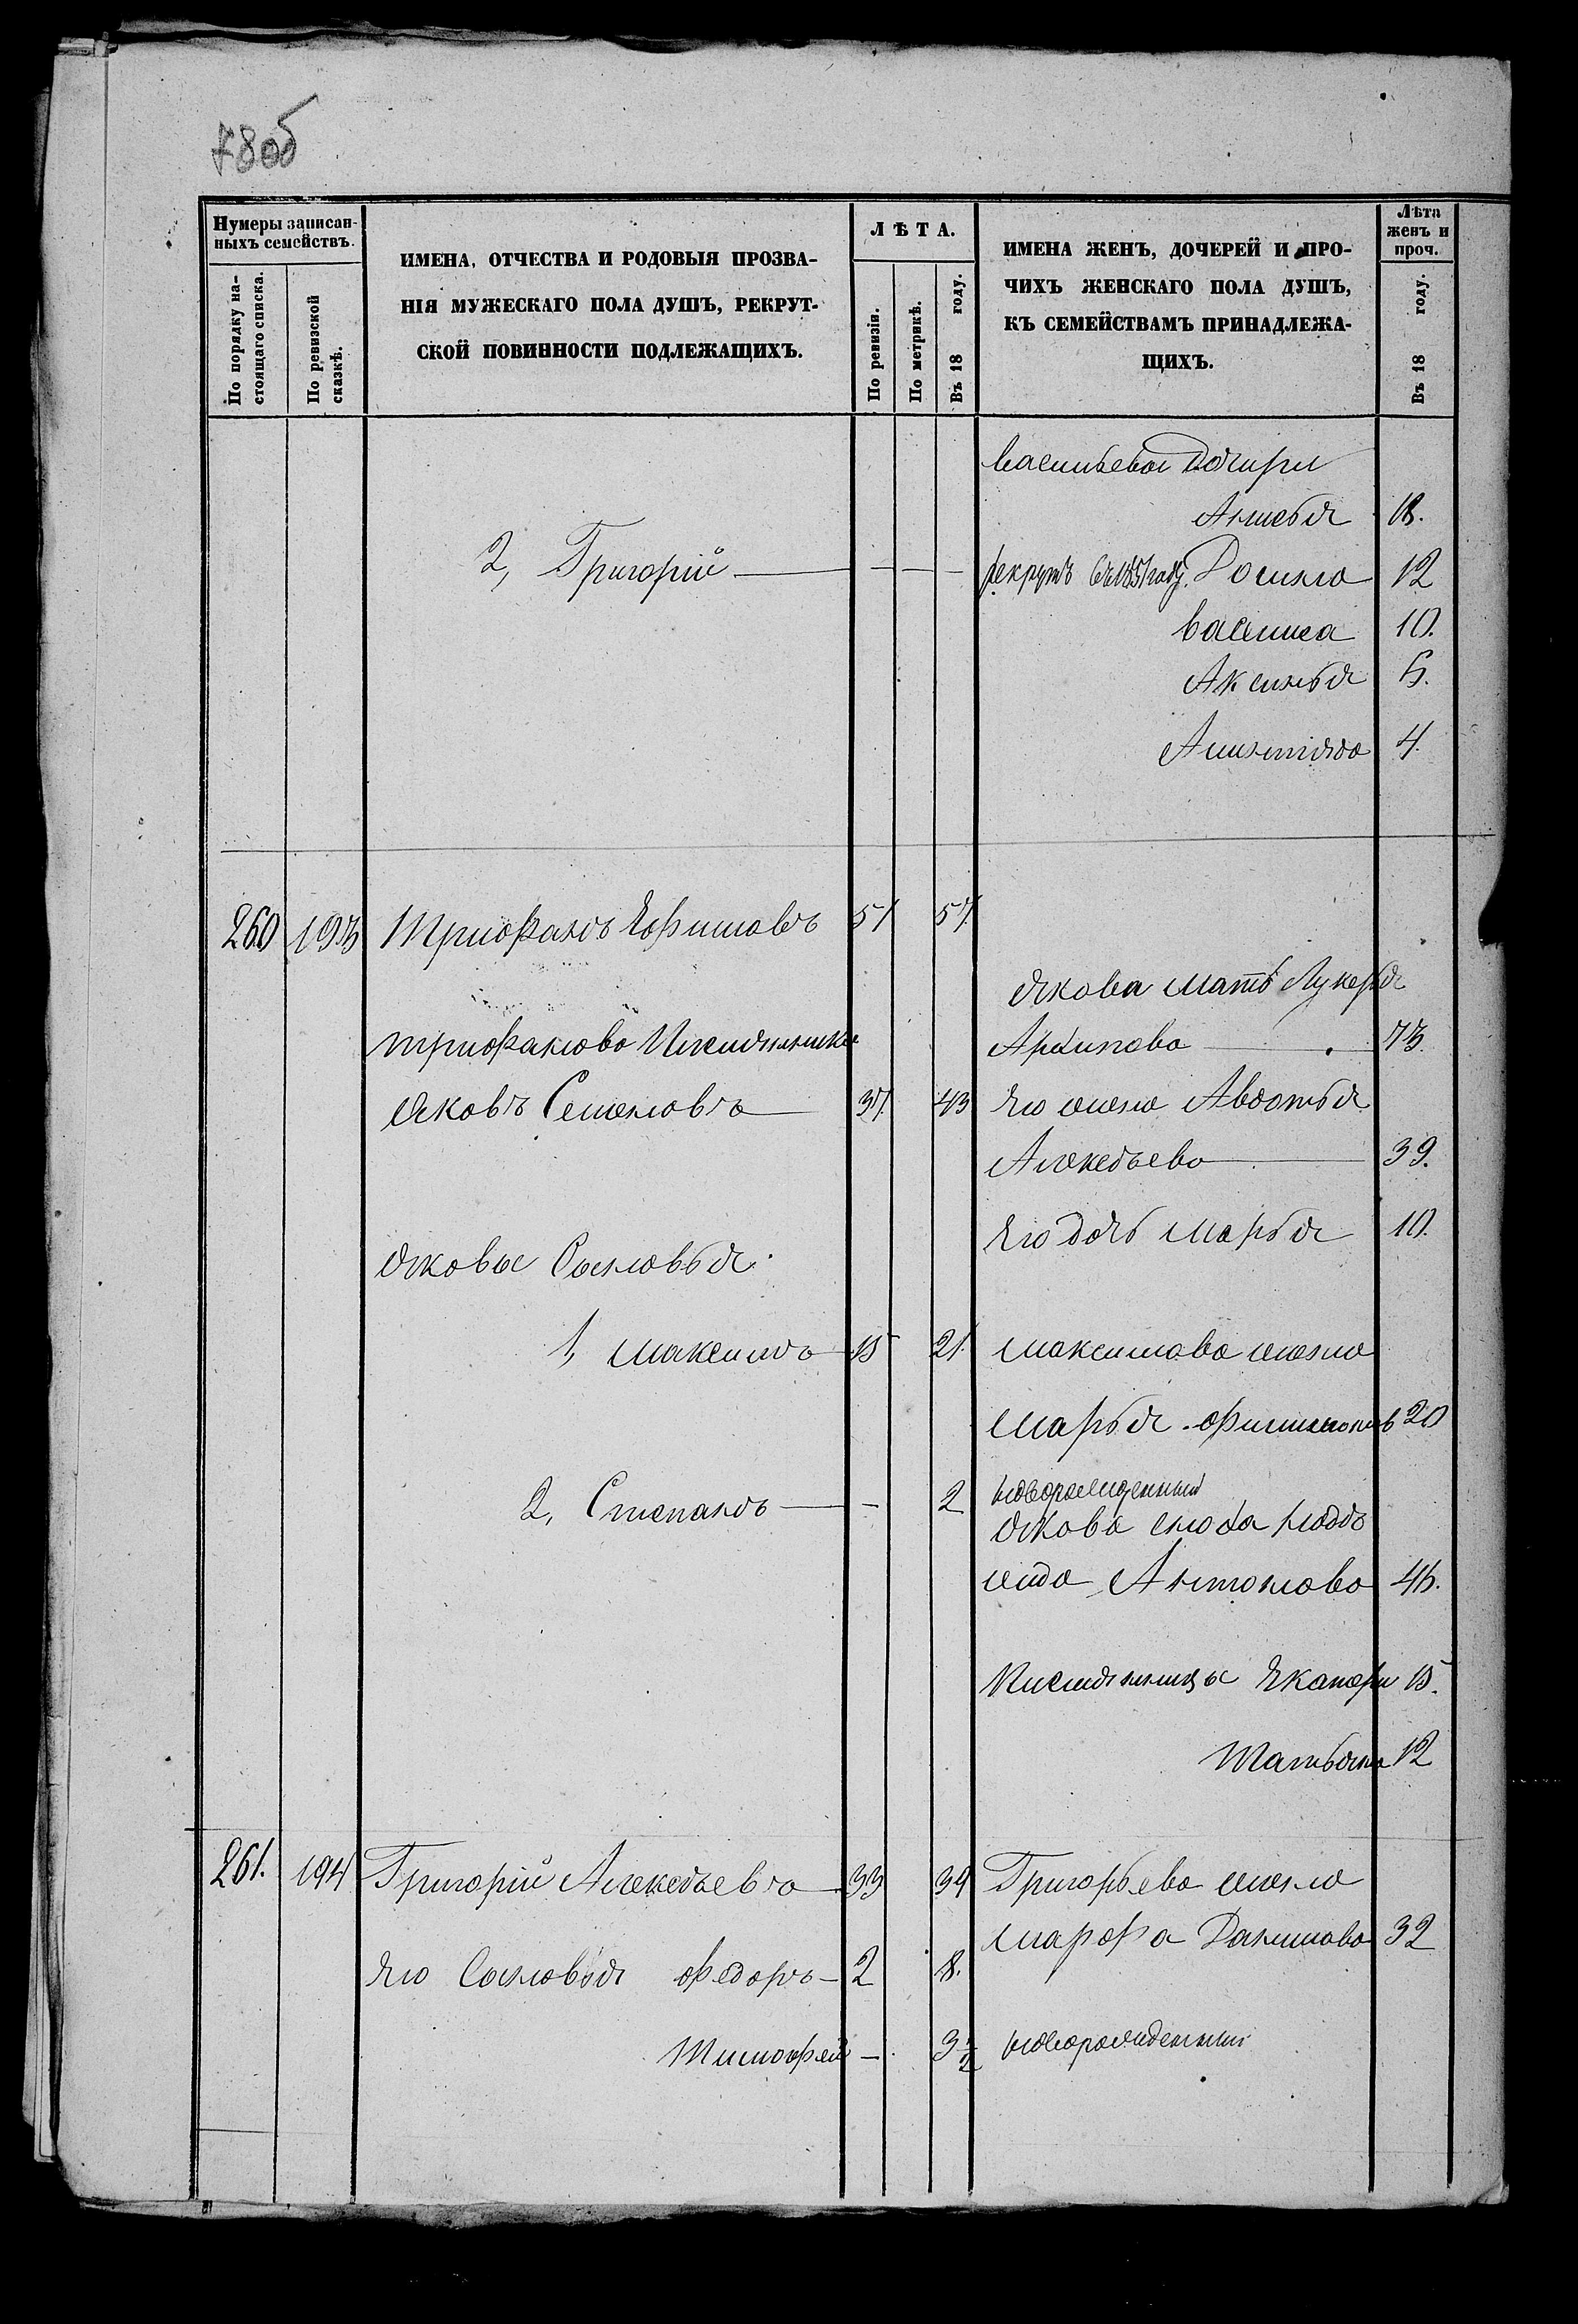 78об
Нумеры записан-
ныхъ семействъ.
По порядку на-
стоящаго списка.
По ревизской
сказкѣ.
ИМЕНА, ОТЧЕСТВА И РОДОВЫЯ ПРОЗВА-
НІЯ МУЖЕСКАГО ПОЛА ДУШЪ, РЕКРУТ-
СКОЙ ПОВИННОСТИ ПОДЛЕЖАЩИХЪ.
ЛѢТА.
По ревизіи.
По метрикѣ.
Въ 18 году.
ИМЕНА ЖЕНЪ, ДОЧЕРЕЙ И ПРО-
ЧИХЪ ЖЕНСКАГО ПОЛА ДУШЪ,
КЪ СЕМЕЙСТВАМЪ ПРИНАДЛЕЖА-
ЩИХЪ.
Лѣта
женъ и
проч.
Въ 18 году.
Васильевы Дочири
18.
2, Григорій — — — рекрутъ 12
Василиса 10.
Аксинья 6.
4.
260 193 Трифанъ Ефимовъ 51 57.
Якова мать Лукерья
Трифанова Племянники Архипова — 73.
Яковъ Семеновъ — 37. 43 Его жена Авдотья
Алексѣева — 39.
Его дочь Марья 10.
Яковы Сыновья.
1, Максимъ 15 21. Максимова жена
Марья 20
2, Степанъ — — 2 новорожденный
Якова сноха
Антонова 46.
Племянницы Екатери 15.
Татьяна 12
261. 194 Григорій Алексѣевъ 33 39 Григорьева жена
Марфа Данилова 32
Его Сыновья Федоръ — 2 8.
Тимофей — 3 1/2 новорожденный